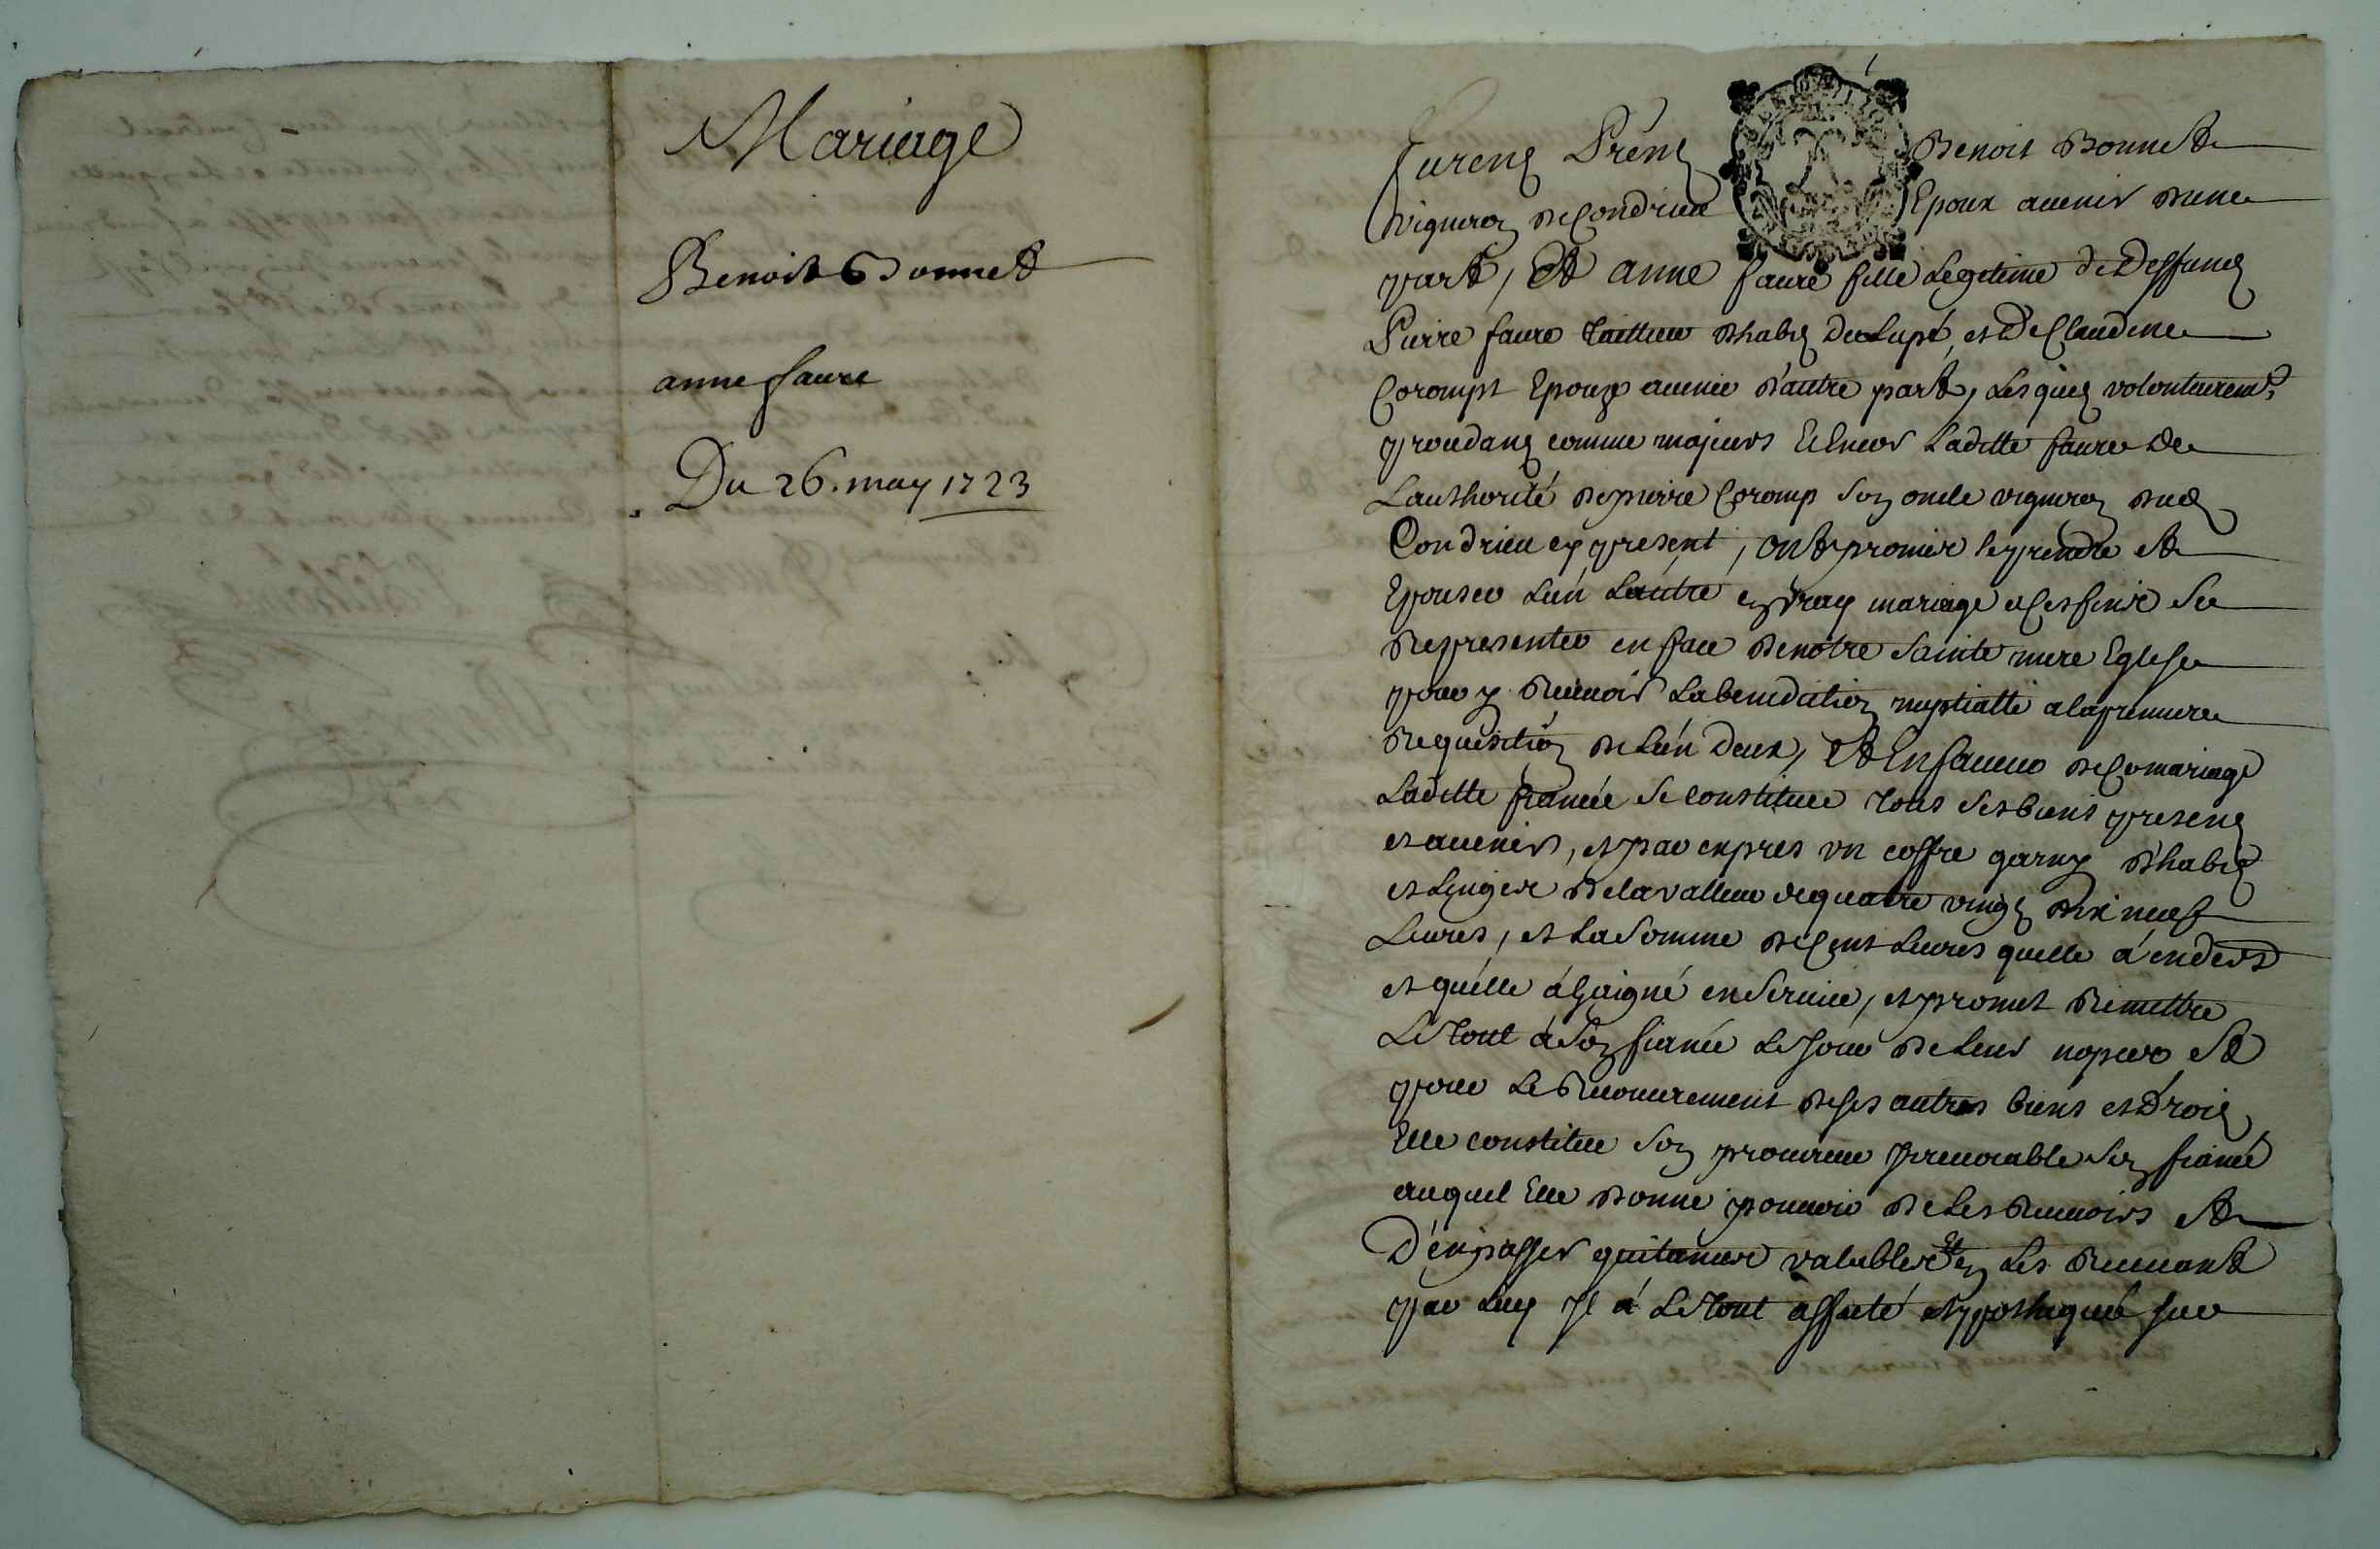 Mariage
Benoist Bonnet
anne faure
Du 26. may 1723
furent Présents Benoit Bonnet
vigneron de Condrieu Epoux avenir d'une
part, Et anne faure fille Legitime de Deffunct
Pierre faure tailleur d'habits de Lupé, et de Claudine
Corompt Epouze avenir d'autre part, Lesquels volontairemt.
procedans comme majeurs Et Encor Laditte faure de
L'authorité de pierre Coromp son oncle vigneron dud
Condrieu cy present, ont promis se prendre et
Epouser L'un L'autre en vray mariage a Ces fins se
Representer en face de notre Sainte mere Eglise
pour y Recevoir La benediction nuptialle a la premiere
Requisition de L'un deux, Et En faveur de Ce mariage
Laditte fiancée se constitue tous ses biens presens
et avenirs, et par expres un coffre garny d'habits
et Linges de la valleur de quatre vingt dix neuf
Livres, et La Somme de Cent Livres quelle á en
et qu'elle á Gaigné en Service, et promet Remettre
Le tout á son fiancé Le Jour de Leurs nopces et
pour Le Recouvrement de ses autres biens et Droits
Elle constitue son procureur Irrevocable son fiancé
auquel Elle donne pouvoir de Les Recevoirs et
D'en passer quitances valables Et en Les Recevant
par Luy Il á Le tout affecté et ypothequé sur